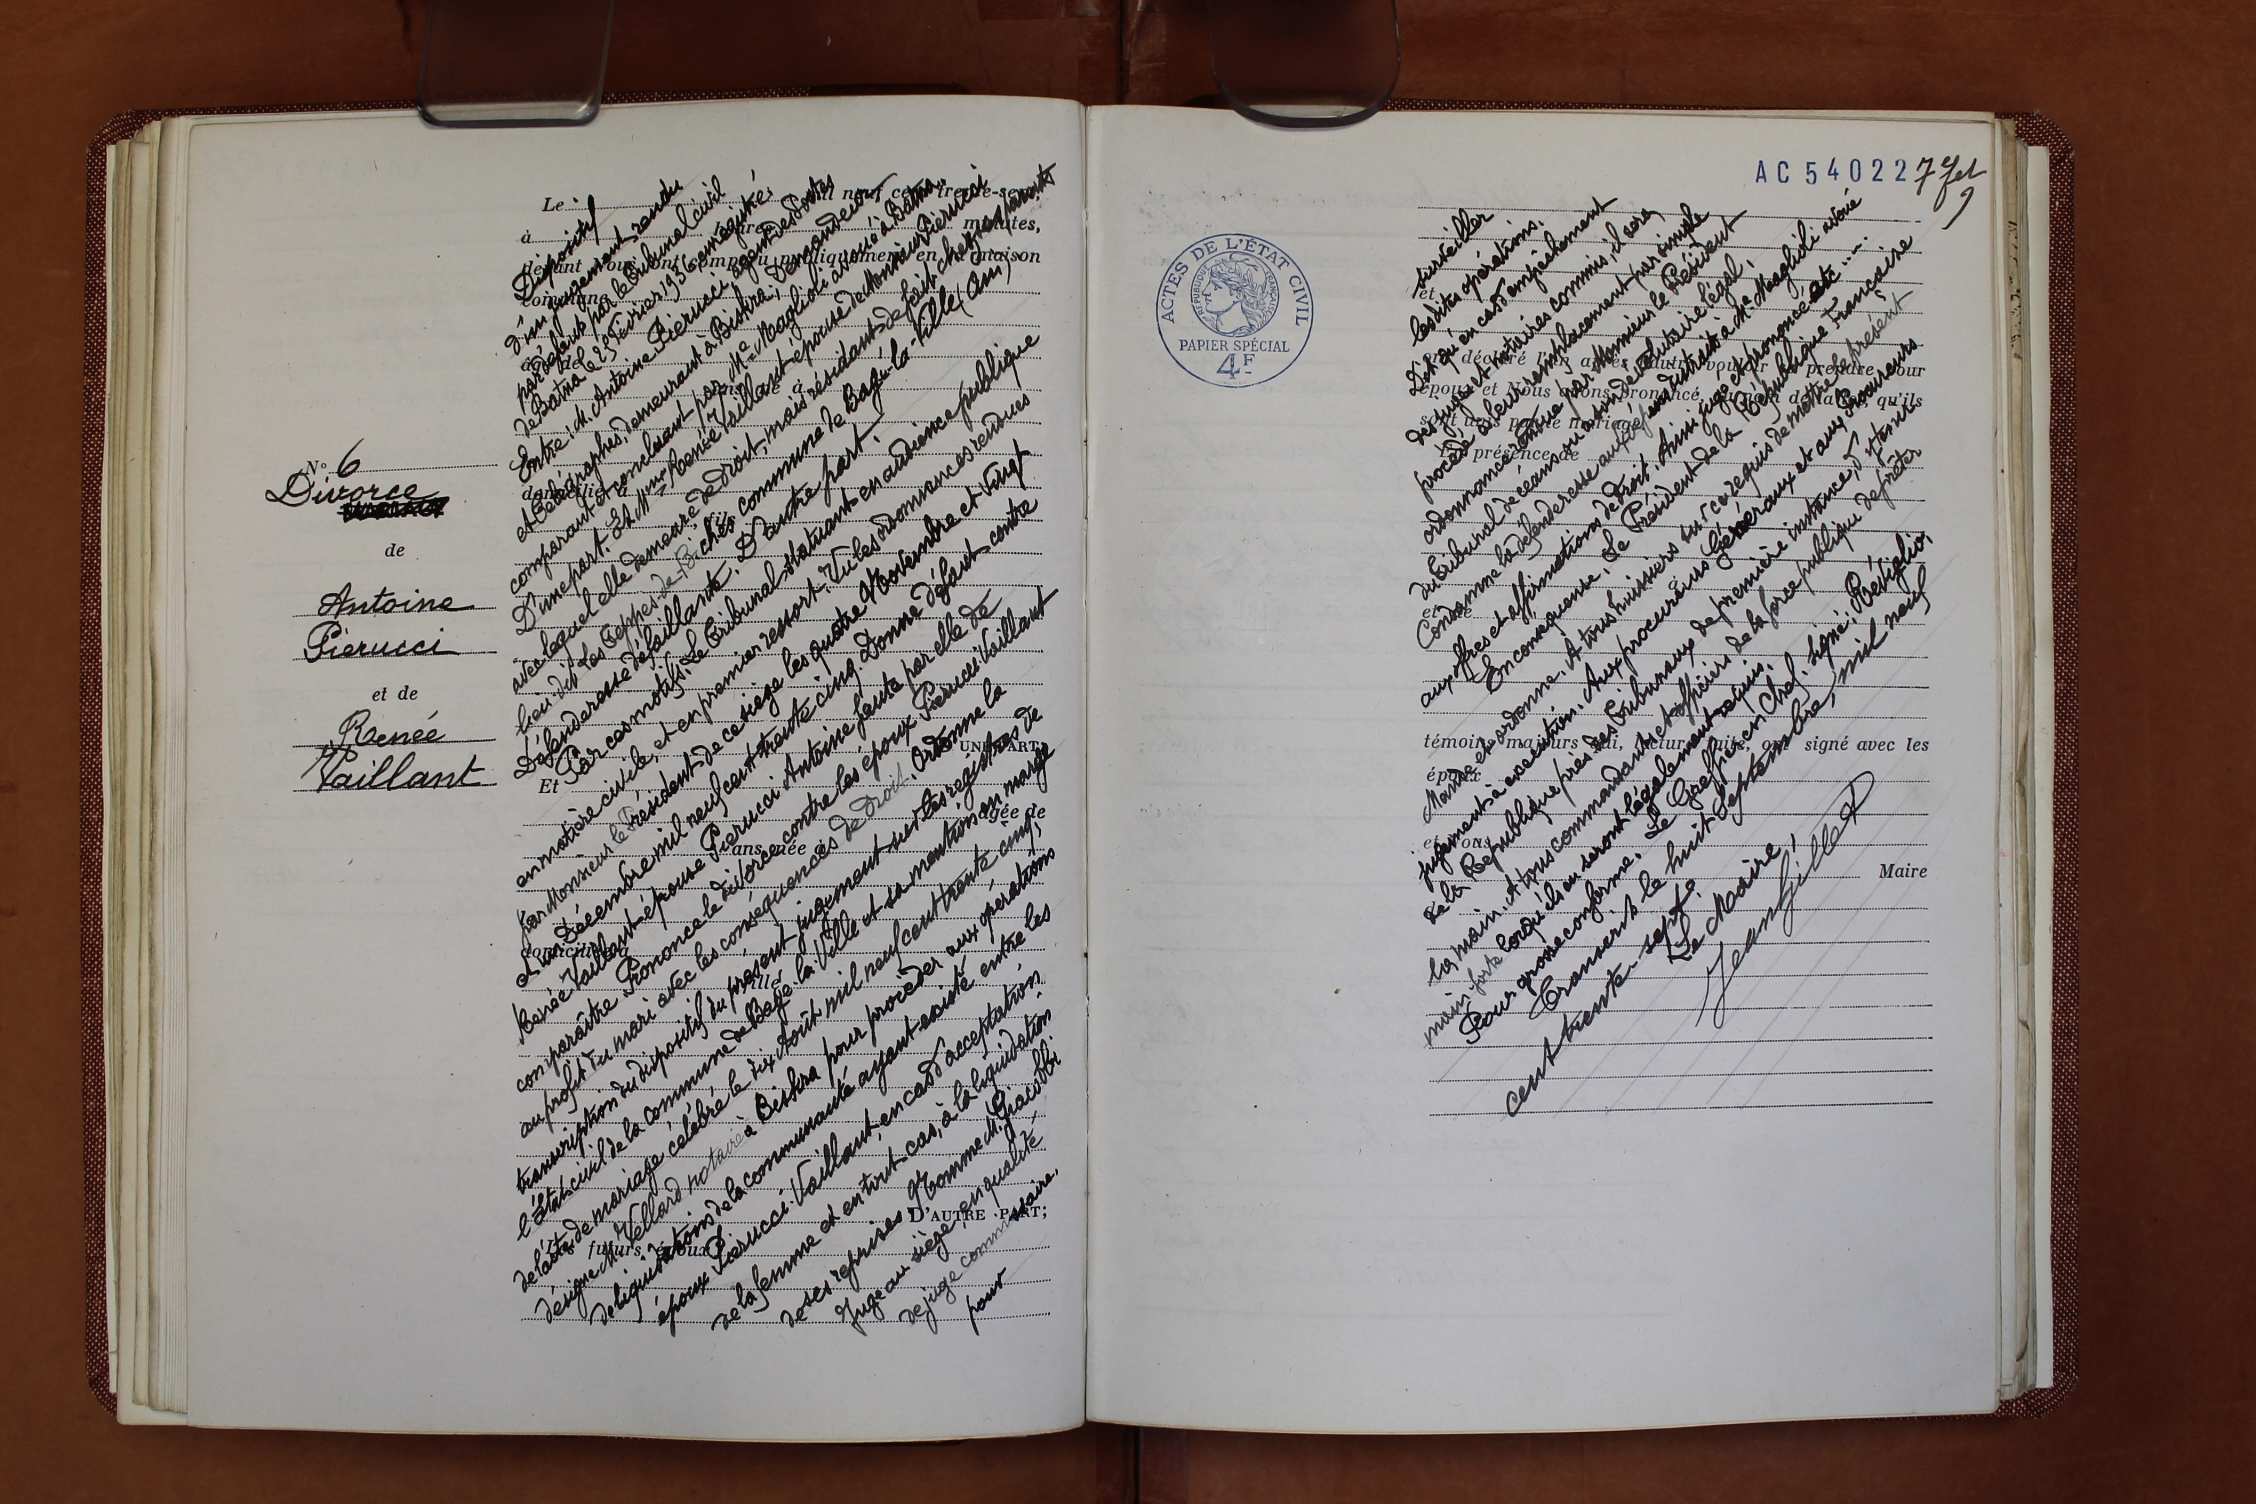 N° 6
Divorce
de
Antoine
Pierucci
et de
Renée
Vaillant
Dispositif
d'un jugement rendu
par défaut par le Tribunal Civil
de Batna le 25 Février 1936 enregistré.
Entre: M. Antoine Pierucci, agent des Postes
et Télégraphes, demeurant à Biskra, Demandeur
comparant et concluant par Me Maglioli avoué à Batna
D'une part. Et Mme Renée Vaillant épouse de Monsieur Pierucci
avec lequel elle demeure de droit, mais résidant de fait chez ses parents
lieu dit Les Teppes-de-Biches commune de Bagé-la-Ville (Ain)
Défenderesse défaillante. D'autre part
Par ces motifs. Le Tribunal statuant en audience publique
en matière civile, et en premier ressort. Vu les ordonnances rendues
par Monsieur le Président de ce siège les quatre Novembre et Vingt
et un Décembre mil neuf cent trente cinq. Donne défaut contre
Renée Vaillant épouse Pierucci Antoine faute par elle de
comparaître Prononce le divorce contre les époux Pierucci Vaillant
au profit du mari avec les conséquences de droit. Ordonne la
transcription du dispositif du présent jugement sur les registres de
l'État-civil de la commune de Bagé-la-Ville et sa mention en marge
de l'acte de mariage célébré le dix Août mil neuf cent trente cinq,
désigne M. Vellard notaire à Biskra pour procéder aux opérations
de liquidations de la communauté ayant existé entre les
époux Pierucci-Vaillant, en cas d'acceptation
de la femme et en tout cas, à la liquidation
de ses reprises. Nomme M. Giacobbi
Juge au siège en qualité
de juge commissaire.
pour
Le
mil neuf cent trente-sept
à
heures
minutes,
devant Nous ont comparu publiquement en la maison
commune
domicilié à
fils
UNE PART;
Et
âgée de
ans, née à
domiciliée à
fille
D'AUTRE PART;
futurs époux
AC 54022 7
ACTES DE L'ÉTAT CIVIL
RÉPUBLIQUE FRANÇAISE
PAPIER SPÉCIAL
4F
surveiller
les dites opérations.
Dit qu'en cas d'empêchement
des juge et notaires commis, il sera
procédé à leur remplacement par simple
ordonnance rendue par Monsieur le Président
du Tribunal de céans ou son dévolutaire légal,
Condamne la défenderesse aux dépens distraits à Me Maglioli avoué
aux offres et affirmations de droit. Ainsi jugé et prononcé etc....
En conséquence. Le Président de la République Française
Mande et ordonne. A tous huissiers sur ce requis de mettre le présent
jugement à exécution. Aux procureurs Généraux et aux Procureurs
de la République près des Tribunaux de première instance, d'y tenir
la main. A tous commandants et officiers de la force publique de prêter
main forte lorsqu'ils en seront légalement requis.
Pour grosse conforme. Le Greffier en Chef. signé: Réstiglio,
Transcrit le huit Septembre, mil neuf
cent trente-sept.
Le Maire,
Jean Gillet
et
ont déclaré l'un après l'autre vouloir se prendre pour
époux et Nous avons prononcé, au nom de la loi, qu'ils
sont unis par le mariage.
En présence de
et de
témoins majeurs qui, lecture faite, ont signé avec les
époux
et Nous
Maire